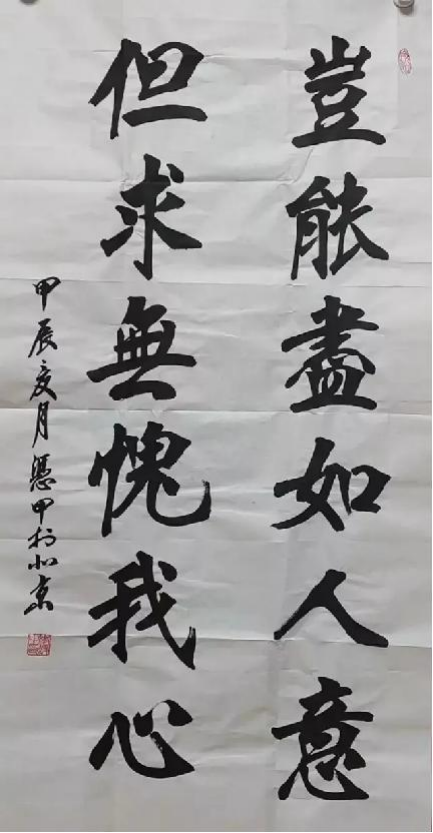 豈能盡如人意
但求無愧我心
甲辰亥月憑甲於北京